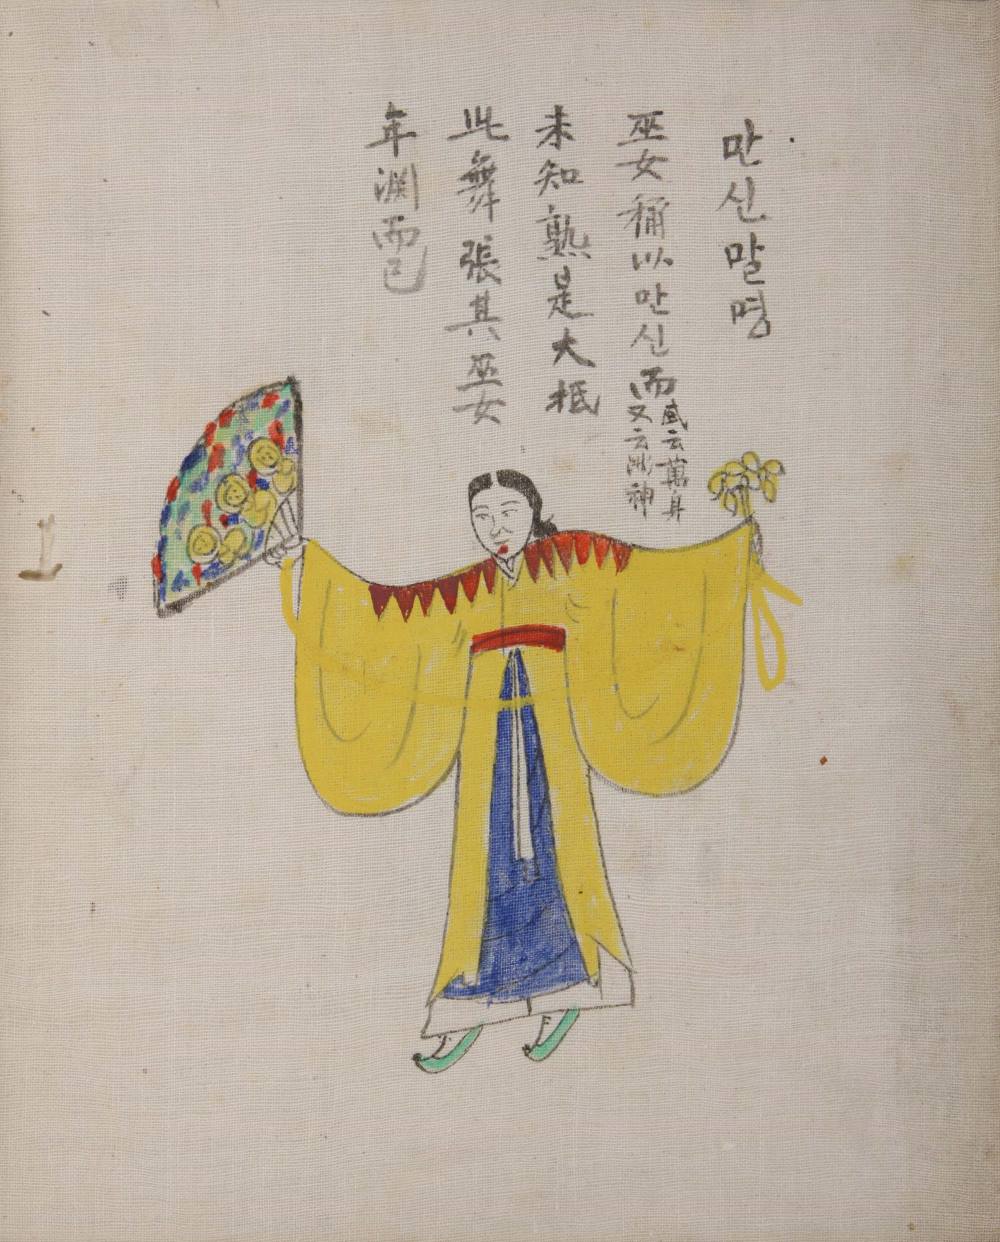 만신말명
巫女稱以만신而
或云萬身
又云神
未知熟是大抵
此舞張其巫女
年淵而已